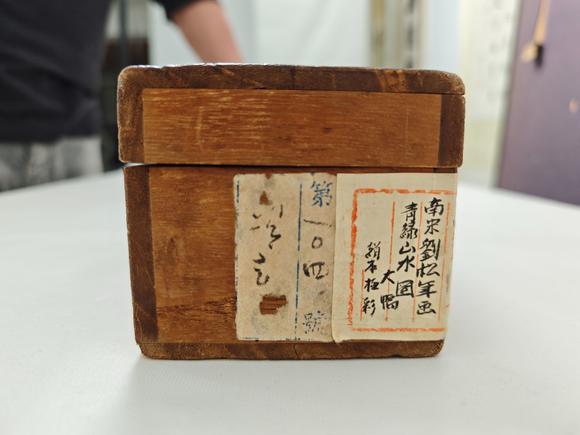 南宋劉松年画
青緑山水図
大
絹本極彩
第一〇四號